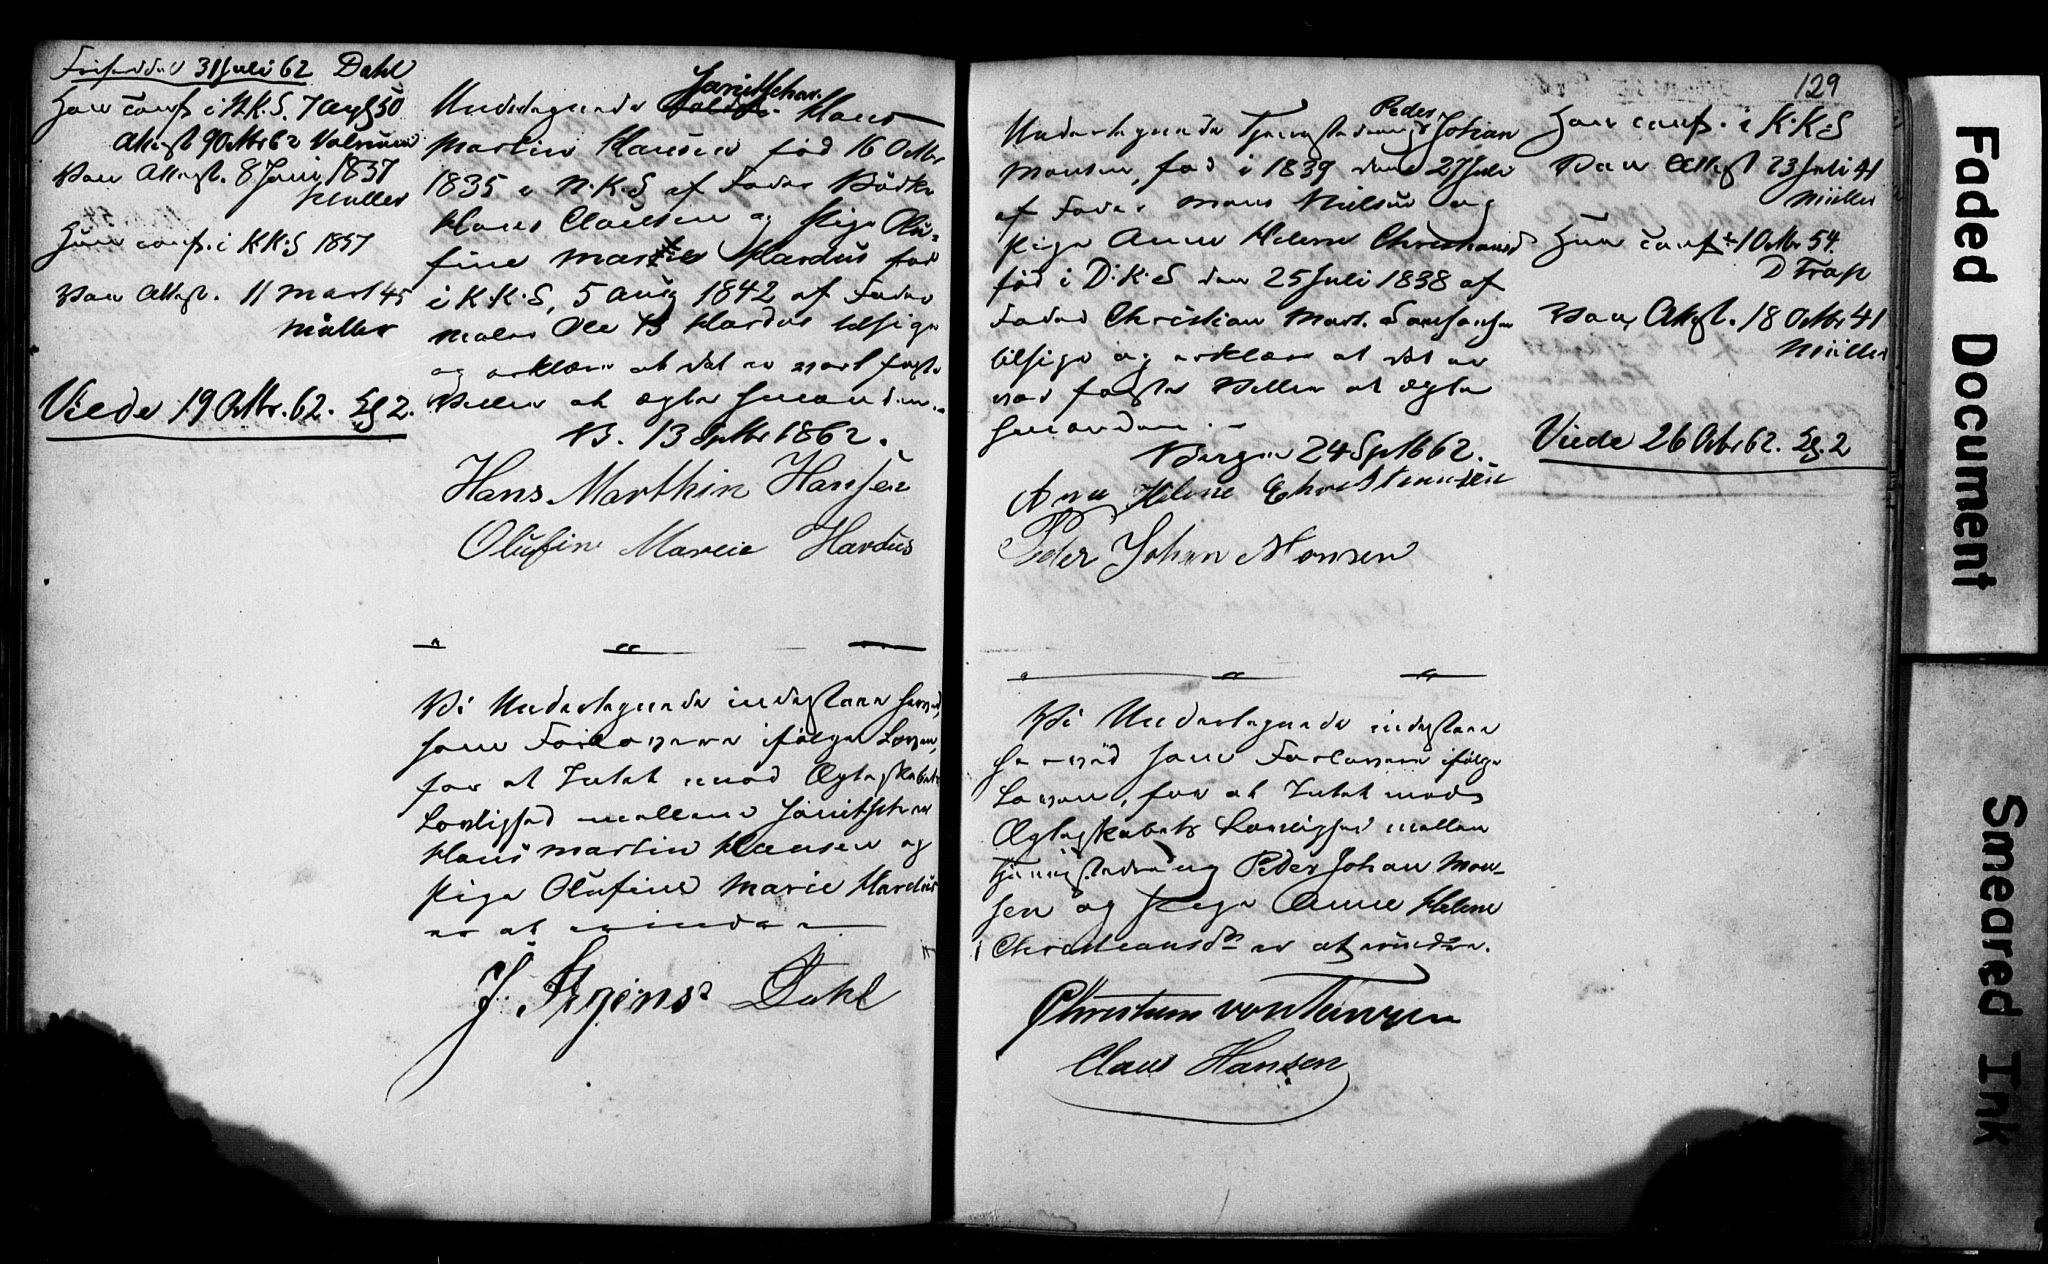 31 Juli 62 Dahl
Han conf i N.K.S. 7 Aug 50
Attest 9 Octbr 62
Vac Attest. 8 Juni 1837
Müller
Hun conf. i K.K.S 1857
Vac Attest. 11 Mart 45
Müller
Viede 19 Octbr. 62. Eg 2.
Undertegnede Janitschar Hans
Martin Hansen fød 16 Octbr
1835 i N.K.S af Fader Bødker
Hans Clausen og Pige Olu-
fine Marie Hardus fød
i K.K.S, 5 Aug 1842 af Fader
Maler Ole B Hardus tilsige
og erklære at det er vort faste
Villie at ægte hinanden.
B. 13 Septbr 1862.
Hans Marthin Hansen
Olufine Mareie Hardus
Vi Undertegnede indestaae herved,
som Forlovere ifølge Loven,
for at Intet imod Ægteskabets
Lovlighed mellem Janitschar
Hans Martin Hansen og
Pige Olufine Marie Hardus
er at erindre
J. Irgens Dahl
129
Undertegnede Tjenestedreng Peder Johan
Monsen, fød i 1839 den 27 Juli
af Fader Mons Nielsen og
Pige Anne Helene Christiansd
fød i D.K.S den 25 Juli 1838 af
Fader Christian Mart.
tilsige og erklære at det er
vor faste Villie at ægte
hinanden.
Bergen 24 Sept 62.
Ane Helene Christiansen
Peder Johan Monsen
Vi Undertegnede indestaae
herved som Forlovere ifølge
Loven, for at Intet mod
Ægteskabets Lovlighed mellem
Tjenestedreng Peder Johan Mon-
sen og Pige Anne Helene
Christiansdr er at erindre.
Claus Hansen
Han conf. i K.K.S
Vac Attest 23 Juli 41
Müller
Hun conf. 1 Octbr 54.
D Trap
Vac Attest. 18 Octbr 41
Müller
Viede 26 Octbr 62. Eg. 2
Faded Document
Smeared Ink